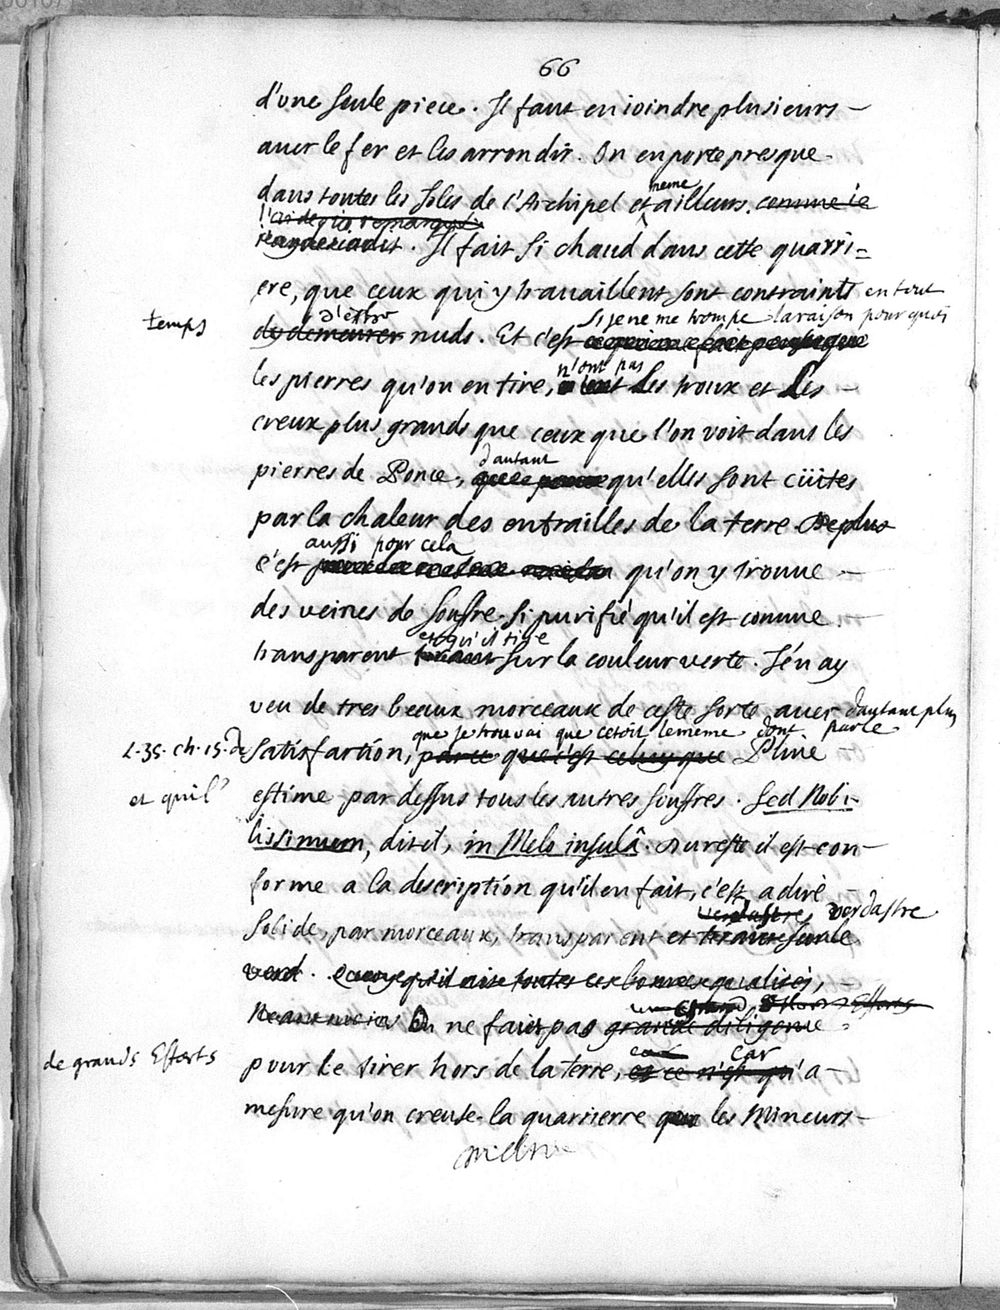 66
d'une seule piece. Il faut en ioindre plusieurs
avec le fer et les arrondir. On en porte presque
même
dans toutes les Isles de l'Archipel et ailleurs. comme ie
l'ai deia remarqué
. Il fait si chaud dans cette quarri=
ere, que ceux qui y travaillent sont contraints en tout
temps
d'estre si je ne me trompe la raison pour quoi
de demeurer nuds. Et c'est
n'ont pas
les pierres qu'on en tire, les troux et les
creux plus grands que ceux que l'on voit dans les
d'autant
pierres de Ponce, qu'elles sont cüites
par la chaleur des entrailles de la terre. De plus
aussi pour cela
c'est qu'on y trouve
des veines de souffre si purifié qu'il est comme
et qu'il tire
transparent sur la couleur verte. J'en ay
veu de tres beaux morceaux de cette sorte avec d'autant plus
que je trouvai que cetoit le meme dont parle
L. 35. ch. 15. de satisfaction, parce que c'est celuy que Pline
et qu'il
estime par dessus tous les autres souffres. Sed Nobi-
lissimum, dit il, in Melo insulâ. Au reste il est con-
forme a la description qu'il en fait, c'est a dire
verdastre verdastre
solide, par morceaux, transparent et
verd. quoy qu'il aist toutes ces bonnes qualités,
Neantmoins On ne fait pas grande diligence
de grands Efforts
car car
pour le tirer hors de la terre, et ce n'est qu'a
mesure qu'on creuse la quarrierre que les Mineurs